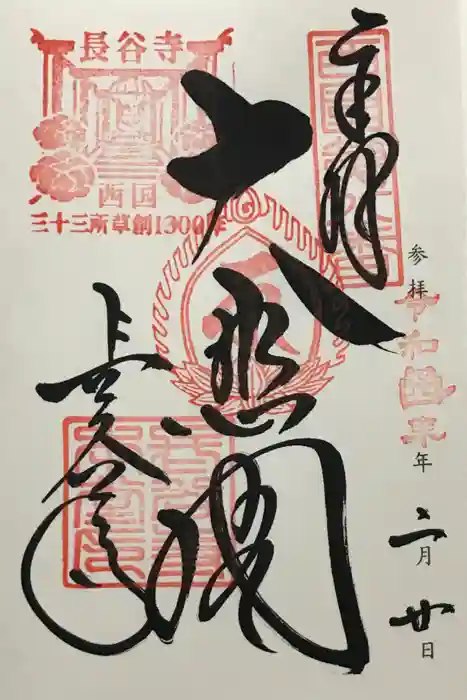 長谷寺
西国
三十三所草創1300年
奉拝
西国第八番
大悲閣
長谷寺
参拝 令和 年 二月 廿日